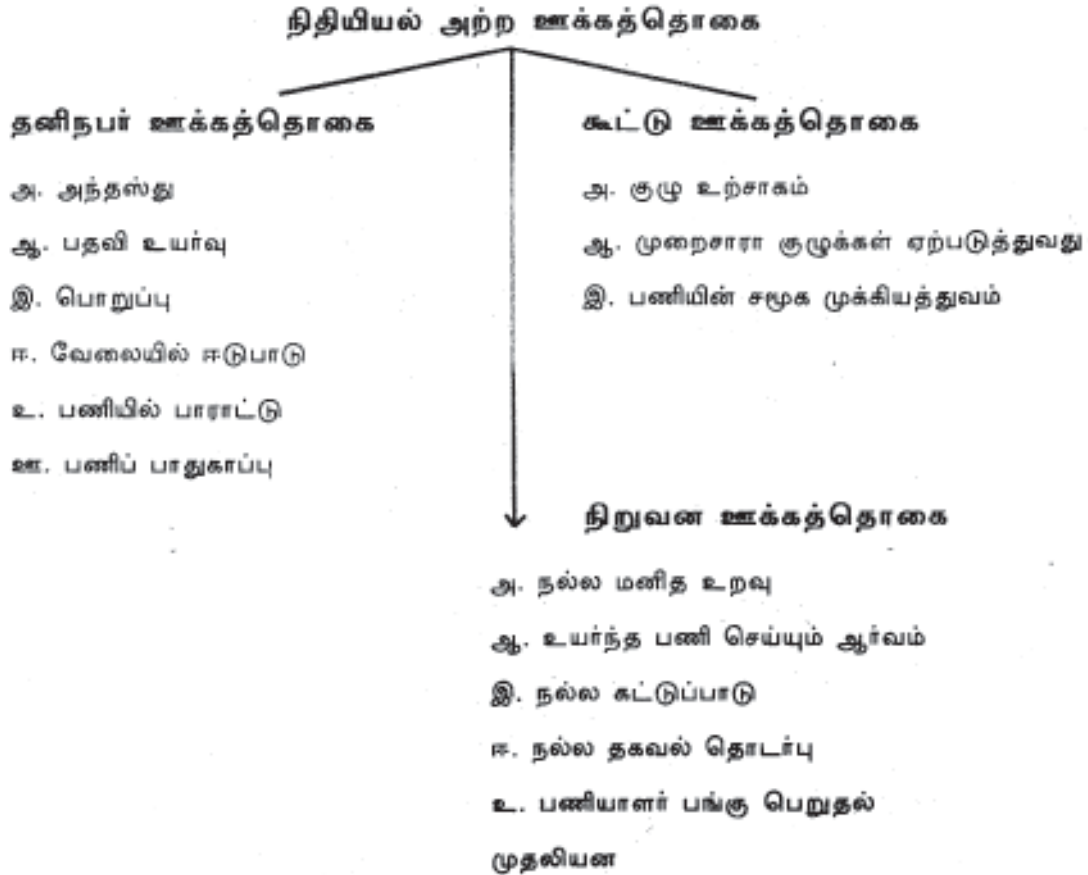 நிதியியல் அற்ற ஊக்கத்தொகை
தனிநபர் ஊக்கத்தொகை
அ. அந்தஸ்து
ஆ. பதவி உயர்வு
இ. பொறுப்பு
ஈ. வேலையில் ஈடுபாடு
உ. பணியில் பாராட்டு
ஊ. பணிப் பாதுகாப்பு
கூட்டு ஊக்கத்தொகை
அ. குழு உற்சாகம்
ஆ. முறைசாரா குழுக்கள் ஏற்படுத்துவது
இ. பணியின் சமூக முக்கியத்துவம்
நிறுவன ஊக்கத்தொகை
அ. நல்ல மனித உறவு
ஆ. உயர்ந்த பணி செய்யும் ஆர்வம்
இ. நல்ல கட்டுப்பாடு
ஈ. நல்ல தகவல் தொடர்பு
உ. பணியாளர் பங்கு பெறுதல்
முதலியன